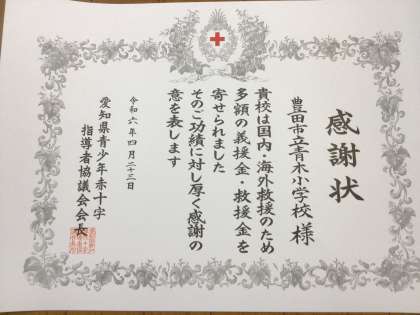 感謝状
豊田市立青木小学校 様
貴校は国内・海外救援のため
多額の義援金・救援金を
寄せられました
そのご功績に対し厚く感謝の
意を表します
令和六年四月二十三日
愛知県青少年赤十字
指導者協議会会長